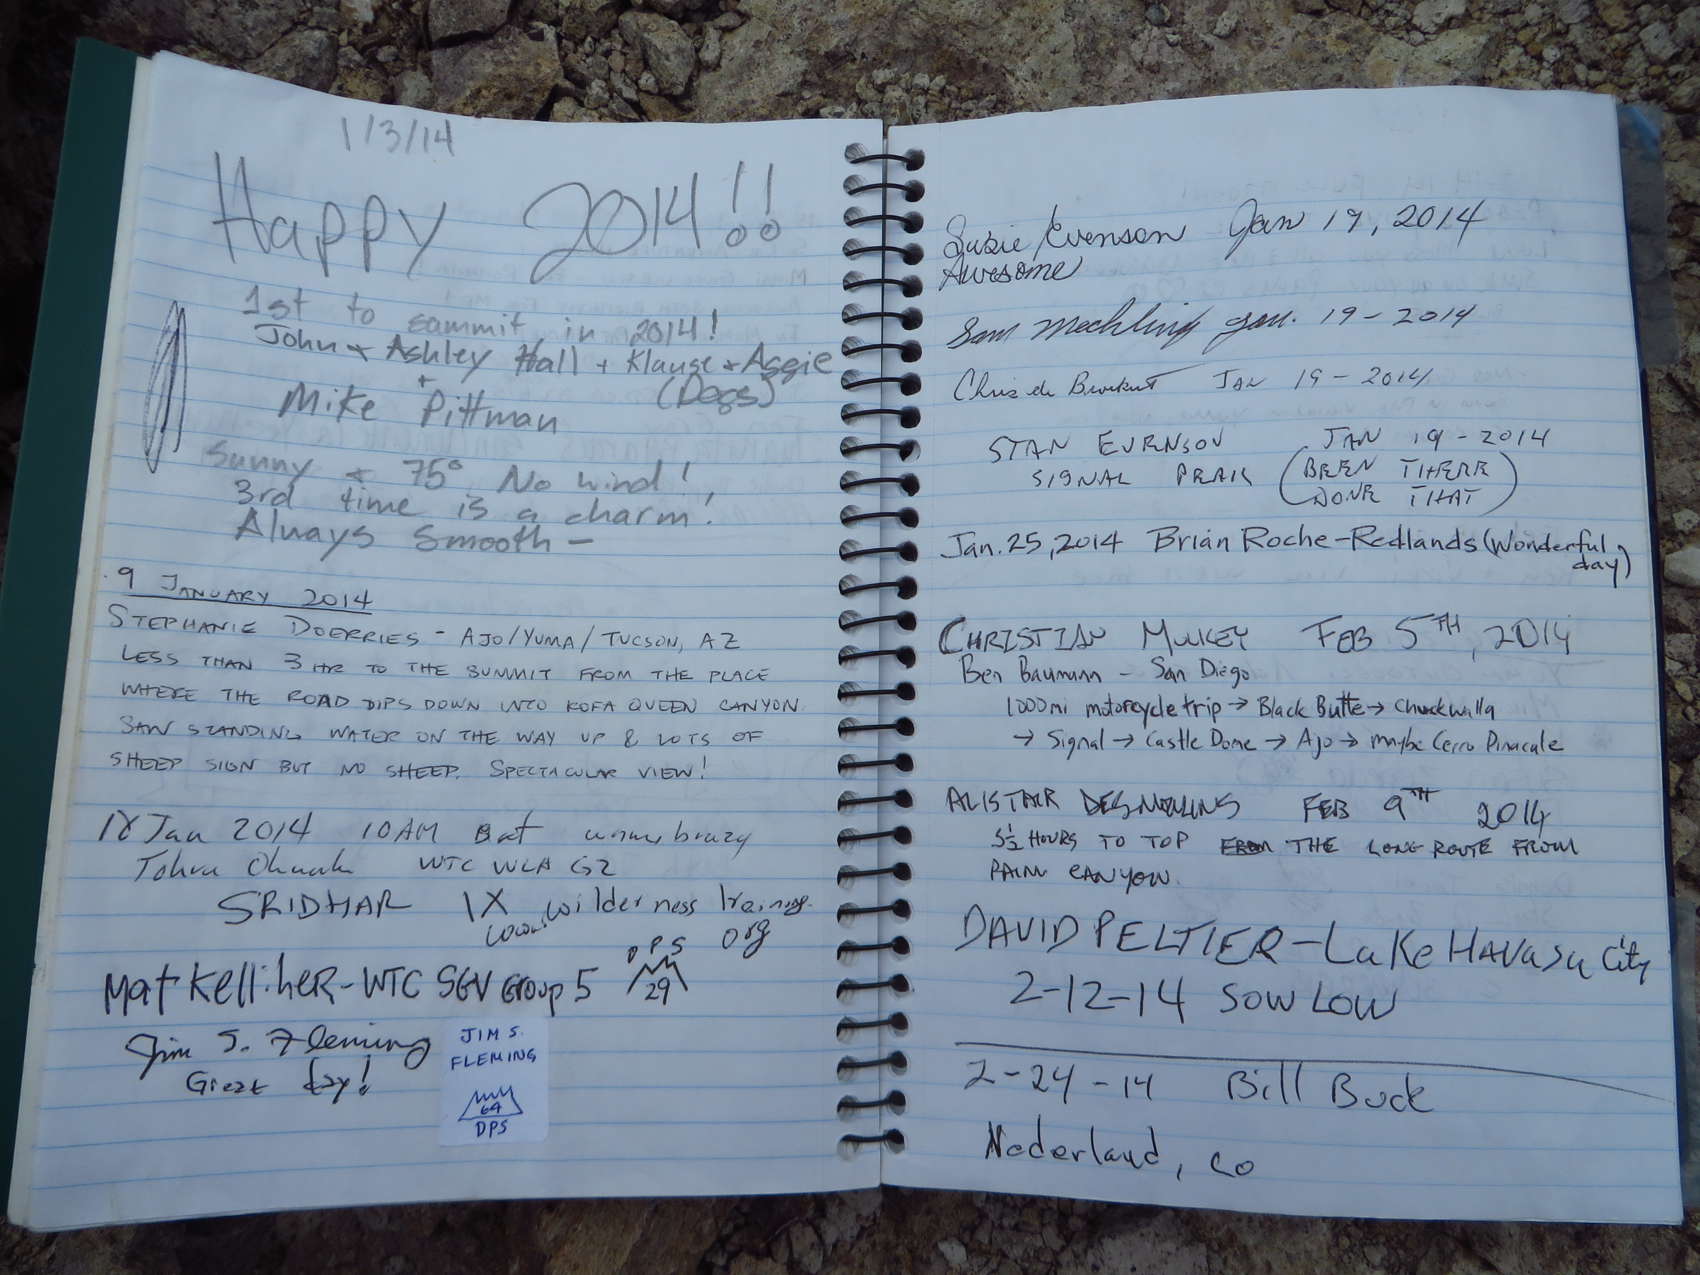 1/3/14
Happy 2014!!
1st to sammit in 2014!
John + Ashley Hall + Klause + Aggie
(Dogs)
+
Mike Pittman
Sunny + 75° No wind!
3rd time is a charm!
Always Smooth -
9 JANUARY 2014
STEPHANIE DOERRIES - AJO/YUMA/TUCSON, AZ
LESS THAN 3 HR TO THE SUMMIT FROM THE PLACE
WHERE THE ROAD DIPS DOWN INTO KOFA QUEEN CANYON.
SAW STANDING WATER ON THE WAY UP & LOTS OF
SHEEP SIGN BUT NO SHEEP. SPECTACULAR VIEW!
18 Jan 2014 10AM
WTC WLA G2
SRIDHAR IX wilderness training.
org
Mat KelliheR - WTC SGV Group 5
DPS
29
Jim S. Fleming
Great day!
JIM S.
FLEMING
64
DPS
Suzie Evenson Jan 19, 2014
Awesome
Sam Mechling Jan. 19 - 2014
Chris de JAN 19 - 2014
STAN EVENSON JAN 19 - 2014
SIGNAL PEAK (BEEN THERE
DONE THAT)
Jan. 25, 2014 Brian Roche - Redlands (Wonderful
day)
CHRISTIAN MULKEY FEB 5TH, 2014
Ben Baumann - San Diego
1000mi motorcycle trip → Black Butte → Chuckwalla
→ Signal → Castle Dome → Ajo → maybe Cerro Pinacate
ALISTAIR DESMOULINS FEB 9TH 2014
5½ HOURS TO TOP FROM THE LONG ROUTE FROM
PALM CANYON.
DAVID PELTIER - Lake HAVASU City
2-12-14 SOW LOW
2-24-14 Bill Buck
Nederland, CO